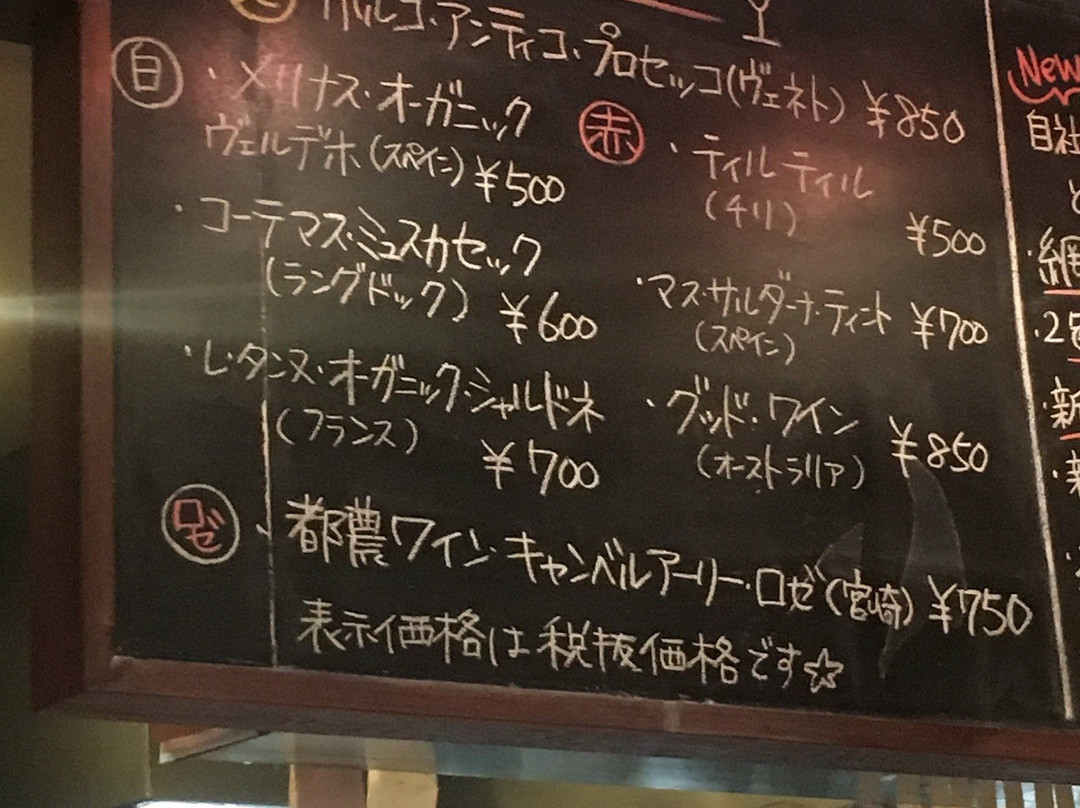 ボルコ・アンティコ・プロセッコ(ヴェネト) ¥850
白 ・メリナス・オーガニック
ヴェルデホ(スペイン) ¥500
・コーテマス・ミュスカセック
(ラングドック) ¥600
・レ・タンヌ・オーガニック・シャルドネ
(フランス)
¥700
赤 ・ティルティル
(チリ)
¥500
・マス・サルダーナ・ティント ¥700
(スペイン)
・グッド・ワイン
(オーストラリア) ¥850
ロゼ ・都農ワイン・キャンベルアーリー・ロゼ(宮崎) ¥750
表示価格は税抜価格です☆
New
自社
・網
・2
・新